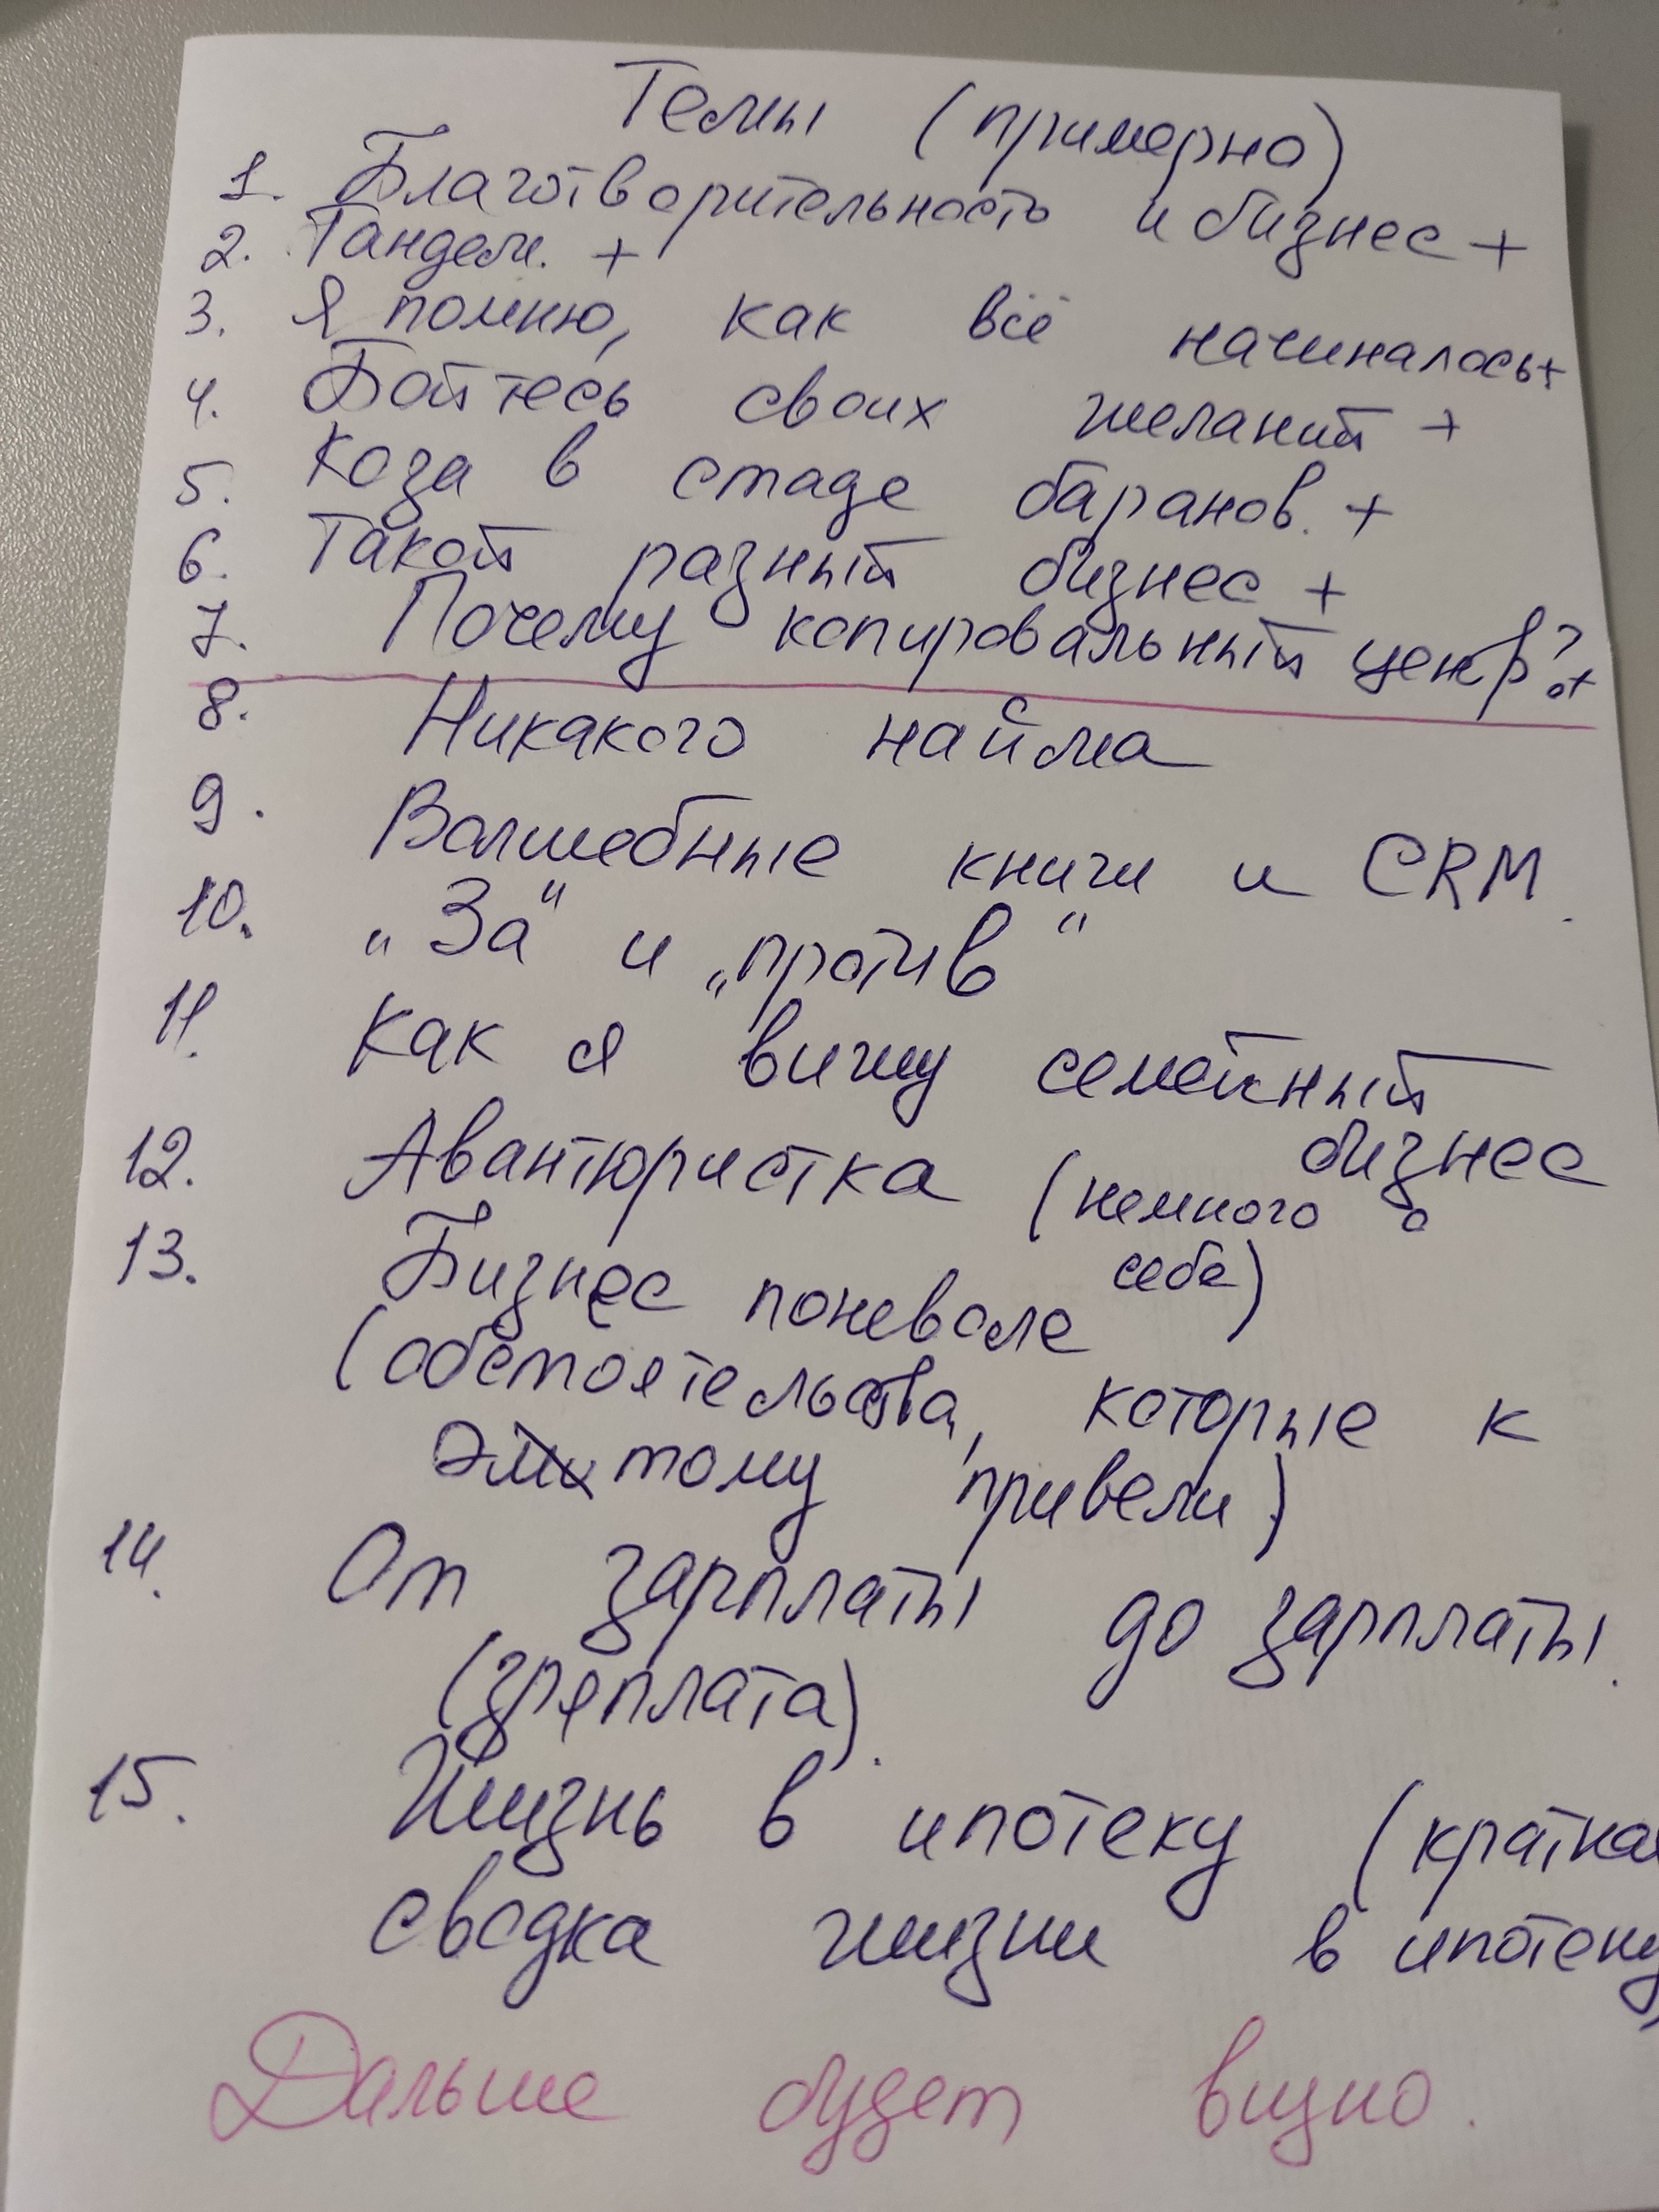 Темы (примерно)
1. Благотворительность и бизнес +
2. Тандем. +
3. Я помню, как всё начиналось+
4. Бойтесь своих желаний +
5. Коза в стаде баранов. +
6. Такой разный бизнес +
7. Почему копировальный центр? +
8. Никакого найма
9. Волшебные книги и CRM.
10. „За“ и „против“
11. Как я вижу семейный
бизнес
12. Авантюристка (немного о
себе)
13. Бизнес поневоле
(обстоятельства, которые к
тому привели)
14. От зарплаты до зарплаты.
(зряплата).
15. Жизнь в ипотеку (краткая
сводка жизни в ипотеку)
Дальше будет видно.